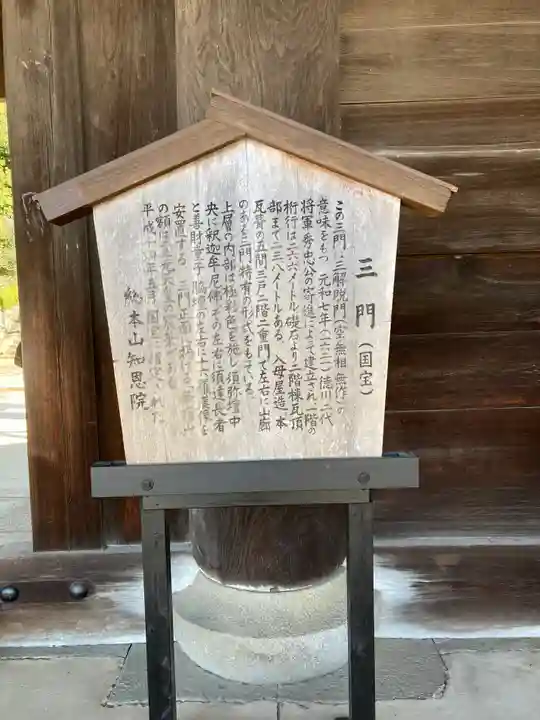 三門(国宝)
この三門は三解脱門(空無相無作)の
意味をもつ 元和七年(一六二一)徳川二代
将軍秀忠公の寄進によって建立され一階の
桁行は二六・六メートル礎石より二階棟瓦頂
部まで二三・八メートルある。入母屋造り本
瓦葺の五間三戸二階二重門で左右に山廊
のある三門特有の形式をもっている。
上層の内部は極彩色を施し須弥壇中
央に釈迦牟尼佛その左右に須達長者
と善財童子 脇壇の左右に十六羅漢を
安置する。三門正面
の額は
平成十四年五月国宝に指定された
総本山知恩院